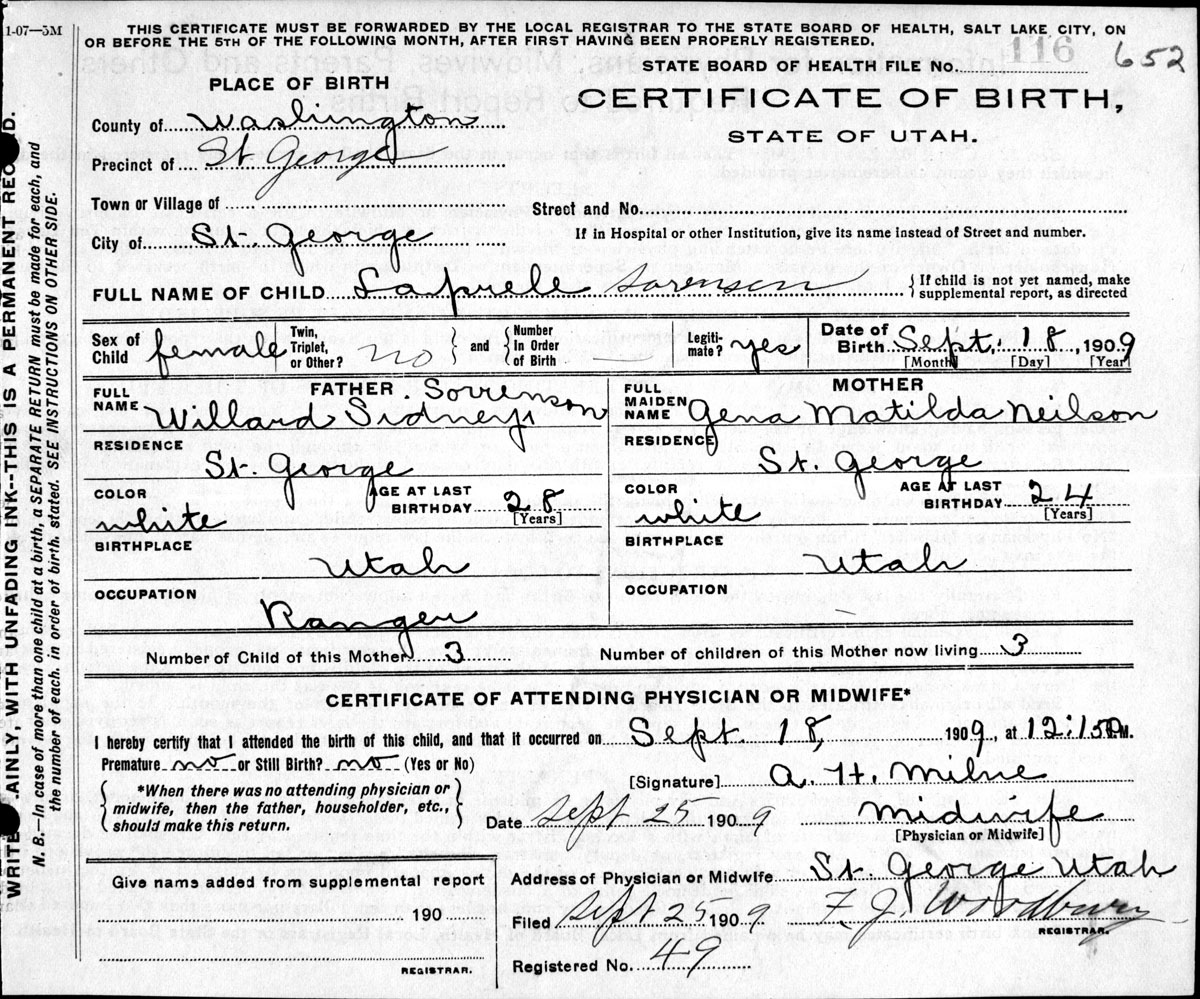 1-07—5M
THIS CERTIFICATE MUST BE FORWARDED BY THE LOCAL REGISTRAR TO THE STATE BOARD OF HEALTH, SALT LAKE CITY, ON
OR BEFORE THE 5TH OF THE FOLLOWING MONTH, AFTER FIRST HAVING BEEN PROPERLY REGISTERED.
STATE BOARD OF HEALTH FILE No. 116 652
PLACE OF BIRTH
CERTIFICATE OF BIRTH,
STATE OF UTAH.
County of Washington
Precinct of St George
Town or Village of
Street and No.
City of St. George
If in Hospital or other Institution, give its name instead of Street and number.
FULL NAME OF CHILD Laprele Sorenson
{ If child is not yet named, make
supplemental report, as directed
Sex of Child female
Twin, Triplet, or Other? no
} and {
Number In Order of Birth —
Legitimate? yes
Date of Birth Sept. 18, 1909
[Month] [Day] [Year]
FATHER
FULL NAME Willard Sidney Sorrenson
MOTHER
FULL MAIDEN NAME Gena Matilda Neilson
RESIDENCE St. George
RESIDENCE St. George
COLOR white
AGE AT LAST BIRTHDAY 28 [Years]
COLOR white
AGE AT LAST BIRTHDAY 24 [Years]
BIRTHPLACE Utah
BIRTHPLACE Utah
OCCUPATION Ranger
OCCUPATION —
Number of Child of this Mother 3
Number of children of this Mother now living 3
CERTIFICATE OF ATTENDING PHYSICIAN OR MIDWIFE*
I hereby certify that I attended the birth of this child, and that it occurred on Sept 18, 1909, at 12:15 P.M.
Premature no or Still Birth? no (Yes or No)
{ *When there was no attending physician or
midwife, then the father, householder, etc.,
should make this return. }
[Signature] A. H. Milne
Date Sept 25 1909
Midwife
[Physician or Midwife]
Give name added from supplemental report
190
REGISTRAR.
Address of Physician or Midwife St. George Utah
Filed Sept 25 1909 F. J. Woodbury
REGISTRAR.
Registered No. 49
N. B.—In case of more than one child at a birth, a SEPARATE RETURN must be made for each, and
the number of each, in order of birth, stated. SEE INSTRUCTIONS ON OTHER SIDE.